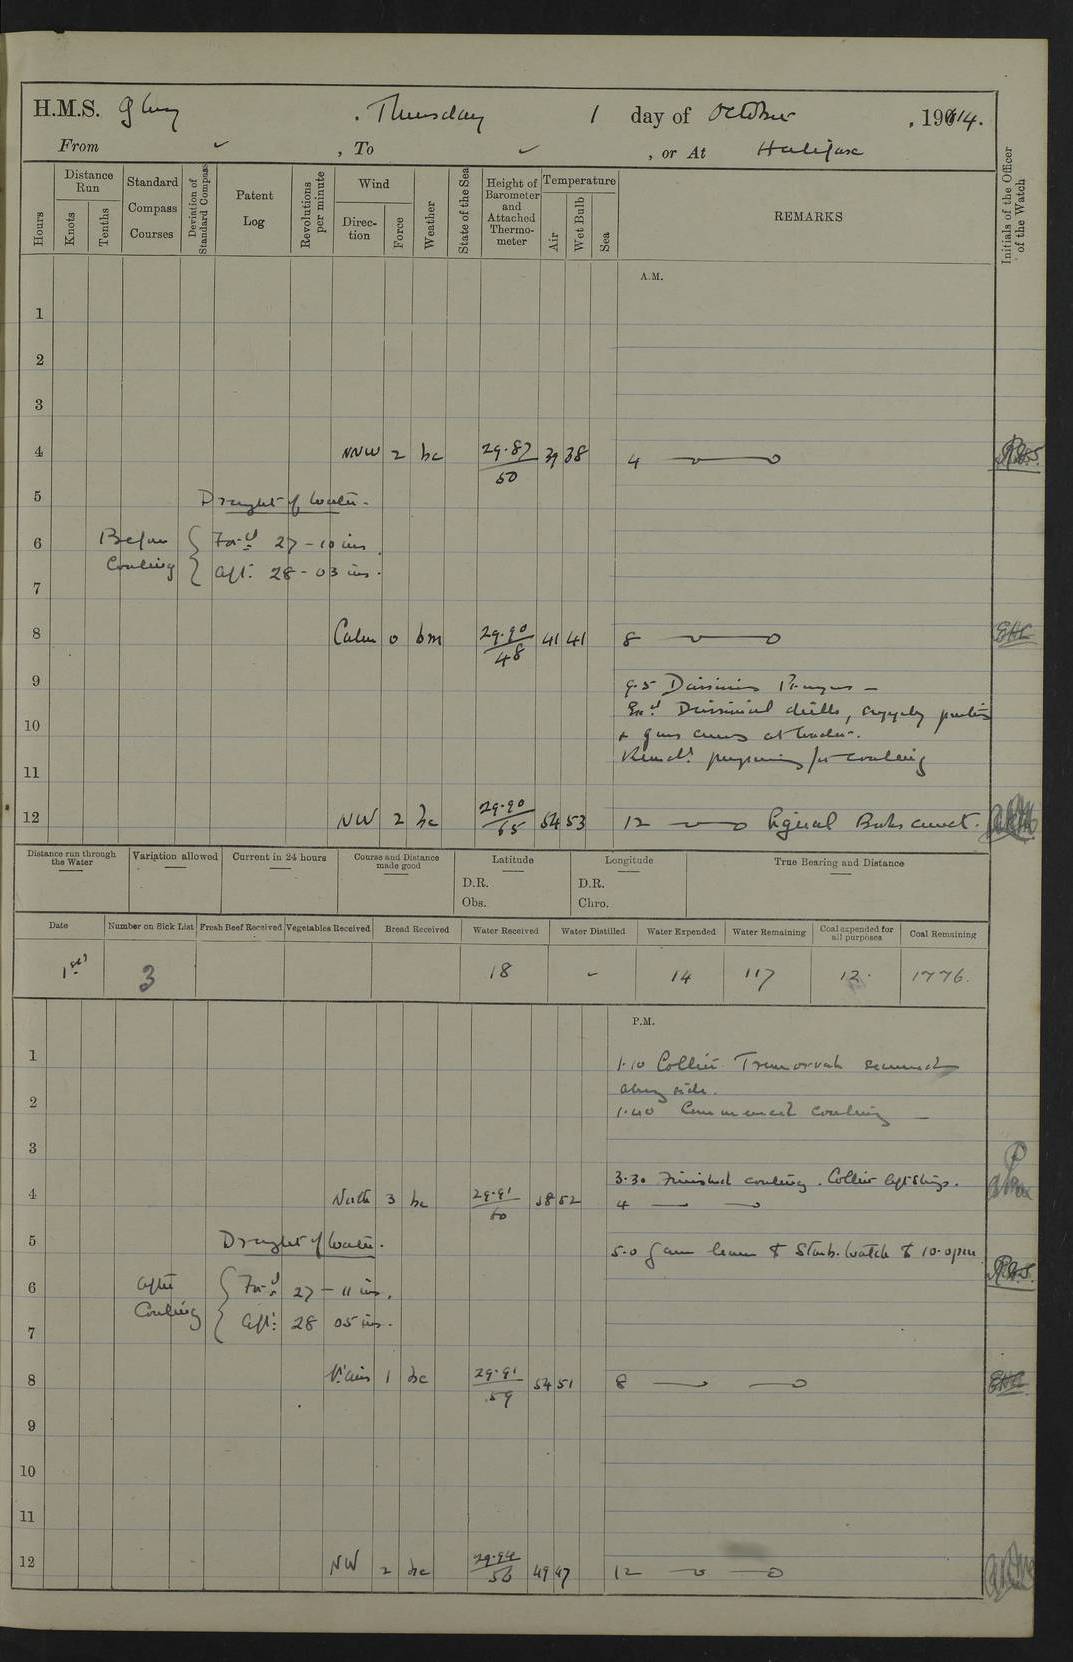 H.M.S. Glory , Thursday 1 day of October , 1914.
From ✓ , To ✓ , or At Halifax
Hours
Distance Run
Knots
Tenths
Standard Compass Courses
Deviation of Standard Compass
Patent Log
Revolutions per minute
Wind
Direction
Force
Weather
State of the Sea
Height of Barometer and Attached Thermometer
Temperature
Air
Wet Bulb
Sea
REMARKS
Initials of the Officer of the Watch
A.M.
1
2
3
4 NNW 2 bc 29.87 50 39 38 4
5 Draught of Water.
6 Before Coaling Ford 27 - 10 ins.
7 Aft. 28 - 03 ins.
8 Calm 0 bm 29.90 48 41 41 8 EHL
9 9.5 Divisions Prayers -
Exd Divisional drills, supply parties
10 & guns crews at loader.
Remdr preparing for coaling
11
12 NW 2 bc 29.90 65 54 53 12 Signal Books correct.
Distance run through the Water
Variation allowed
Current in 24 hours
Course and Distance made good
Latitude
D.R.
Obs.
Longitude
D.R.
Chro.
True Bearing and Distance
Date
Number on Sick List
Fresh Beef Received
Vegetables Received
Bread Received
Water Received
Water Distilled
Water Expended
Water Remaining
Coal expended for all purposes
Coal Remaining
1st 3 18 - 14 117 12. 1776.
P.M.
1 1.10 Collier Tremorvah secured
alongside.
2 1.40 Commenced coaling
3
3.30 Finished coaling. Collier left ship.
4 North 3 bc 29.91 60 58 52 4
5 Draught of Water. 5.0 Gave leave to Starb. Watch to 10.0 pm
6 After Coaling Ford 27 - 11 ins.
7 Aft: 28 05 ins.
8 1 bc 29.91 59 54 51 8 EHL
9
10
11
12 NW 2 bc 29.94 56 49 47 12